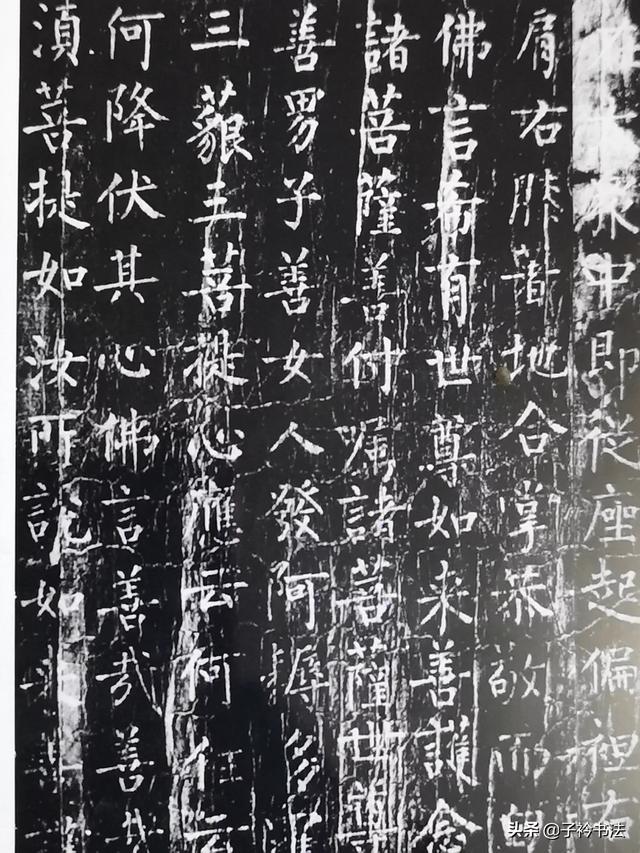 大衆中即從座起偏袒右
肩右膝著地合掌恭敬而
佛言希有世尊如来善護念
諸菩薩善付嘱諸菩薩世尊
善男子善女人發阿耨多羅
三藐三菩提心應云何住云
何降伏其心佛言善哉善哉
湏菩提如汝所說如来
头条 @子衿书法